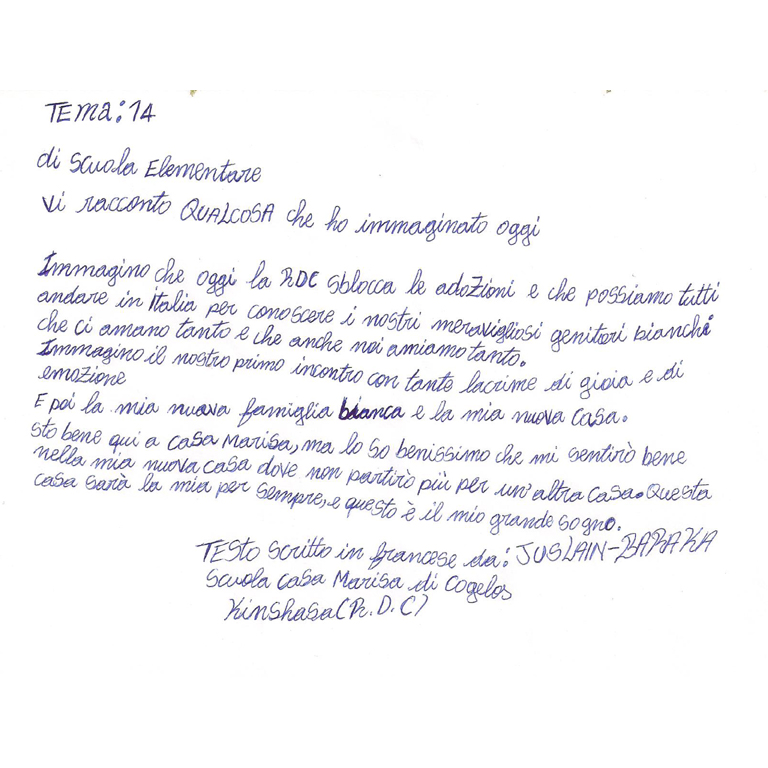 TEma: 14
di scuola Elementare
Vi racconto QUALCOSA che ho immaginato oggi
Immagino che oggi la RDC sblocca le adozioni e che possiamo tutti
andare in italia per conoscere i nostri meravigliosi genitori bianchi
che ci amano tanto e che anche noi amiamo tanto.
Immagino il nostro primo incontro con tante lacrime di gioia e di
emozione
E poi la mia nuova famiglia bianca e la mia nuova casa.
sto bene qui a casa Marisa, ma lo so benissimo che mi sentirò bene
nella mia nuova casa dove non partirò più per un'altra casa. Questa
casa sarà la mia per sempre, e questo è il mio grande sogno.
TESTO scritto in francese da: JUSLAIN-BARAKA
Scuola casa Marisa di Cogelos
Kinshasa (R.D.C)